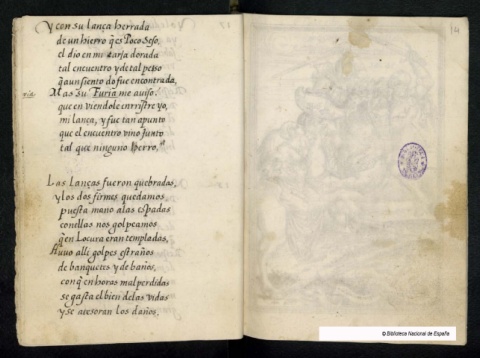 Y con su lança herrada
de un hierro q̃ es Poco Seso,
el dio en mi tarja dorada
tal encuentro y de tal peso
q̃ aun siento do fue encontrada,
Mas su Furia me auiso.
que en viendole enrristre yo,
mi lança, y fue tan apunto
que el encuentro vino junto
tal que ninguno herro.
Las Lanças fueron quebradas,
y los dos firmes quedamos
puesta mano a las espadas
con ellas nos golpeamos
q̃ en Locura eran templadas,
Huuo alli golpes estraños
de banquetes y de baños,
con q̃ en horas mal perdidas
se gasta el bien de las vidas
y se atesoran los daños.
14
© Biblioteca Nacional de España